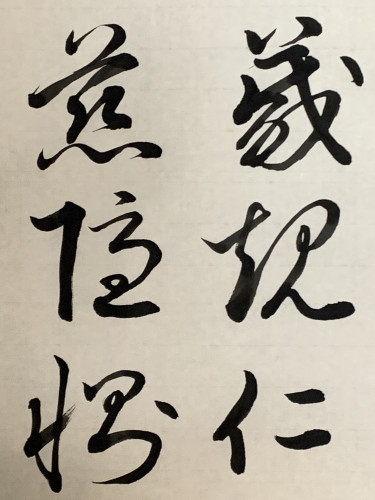 箴規仁
慈隱惻